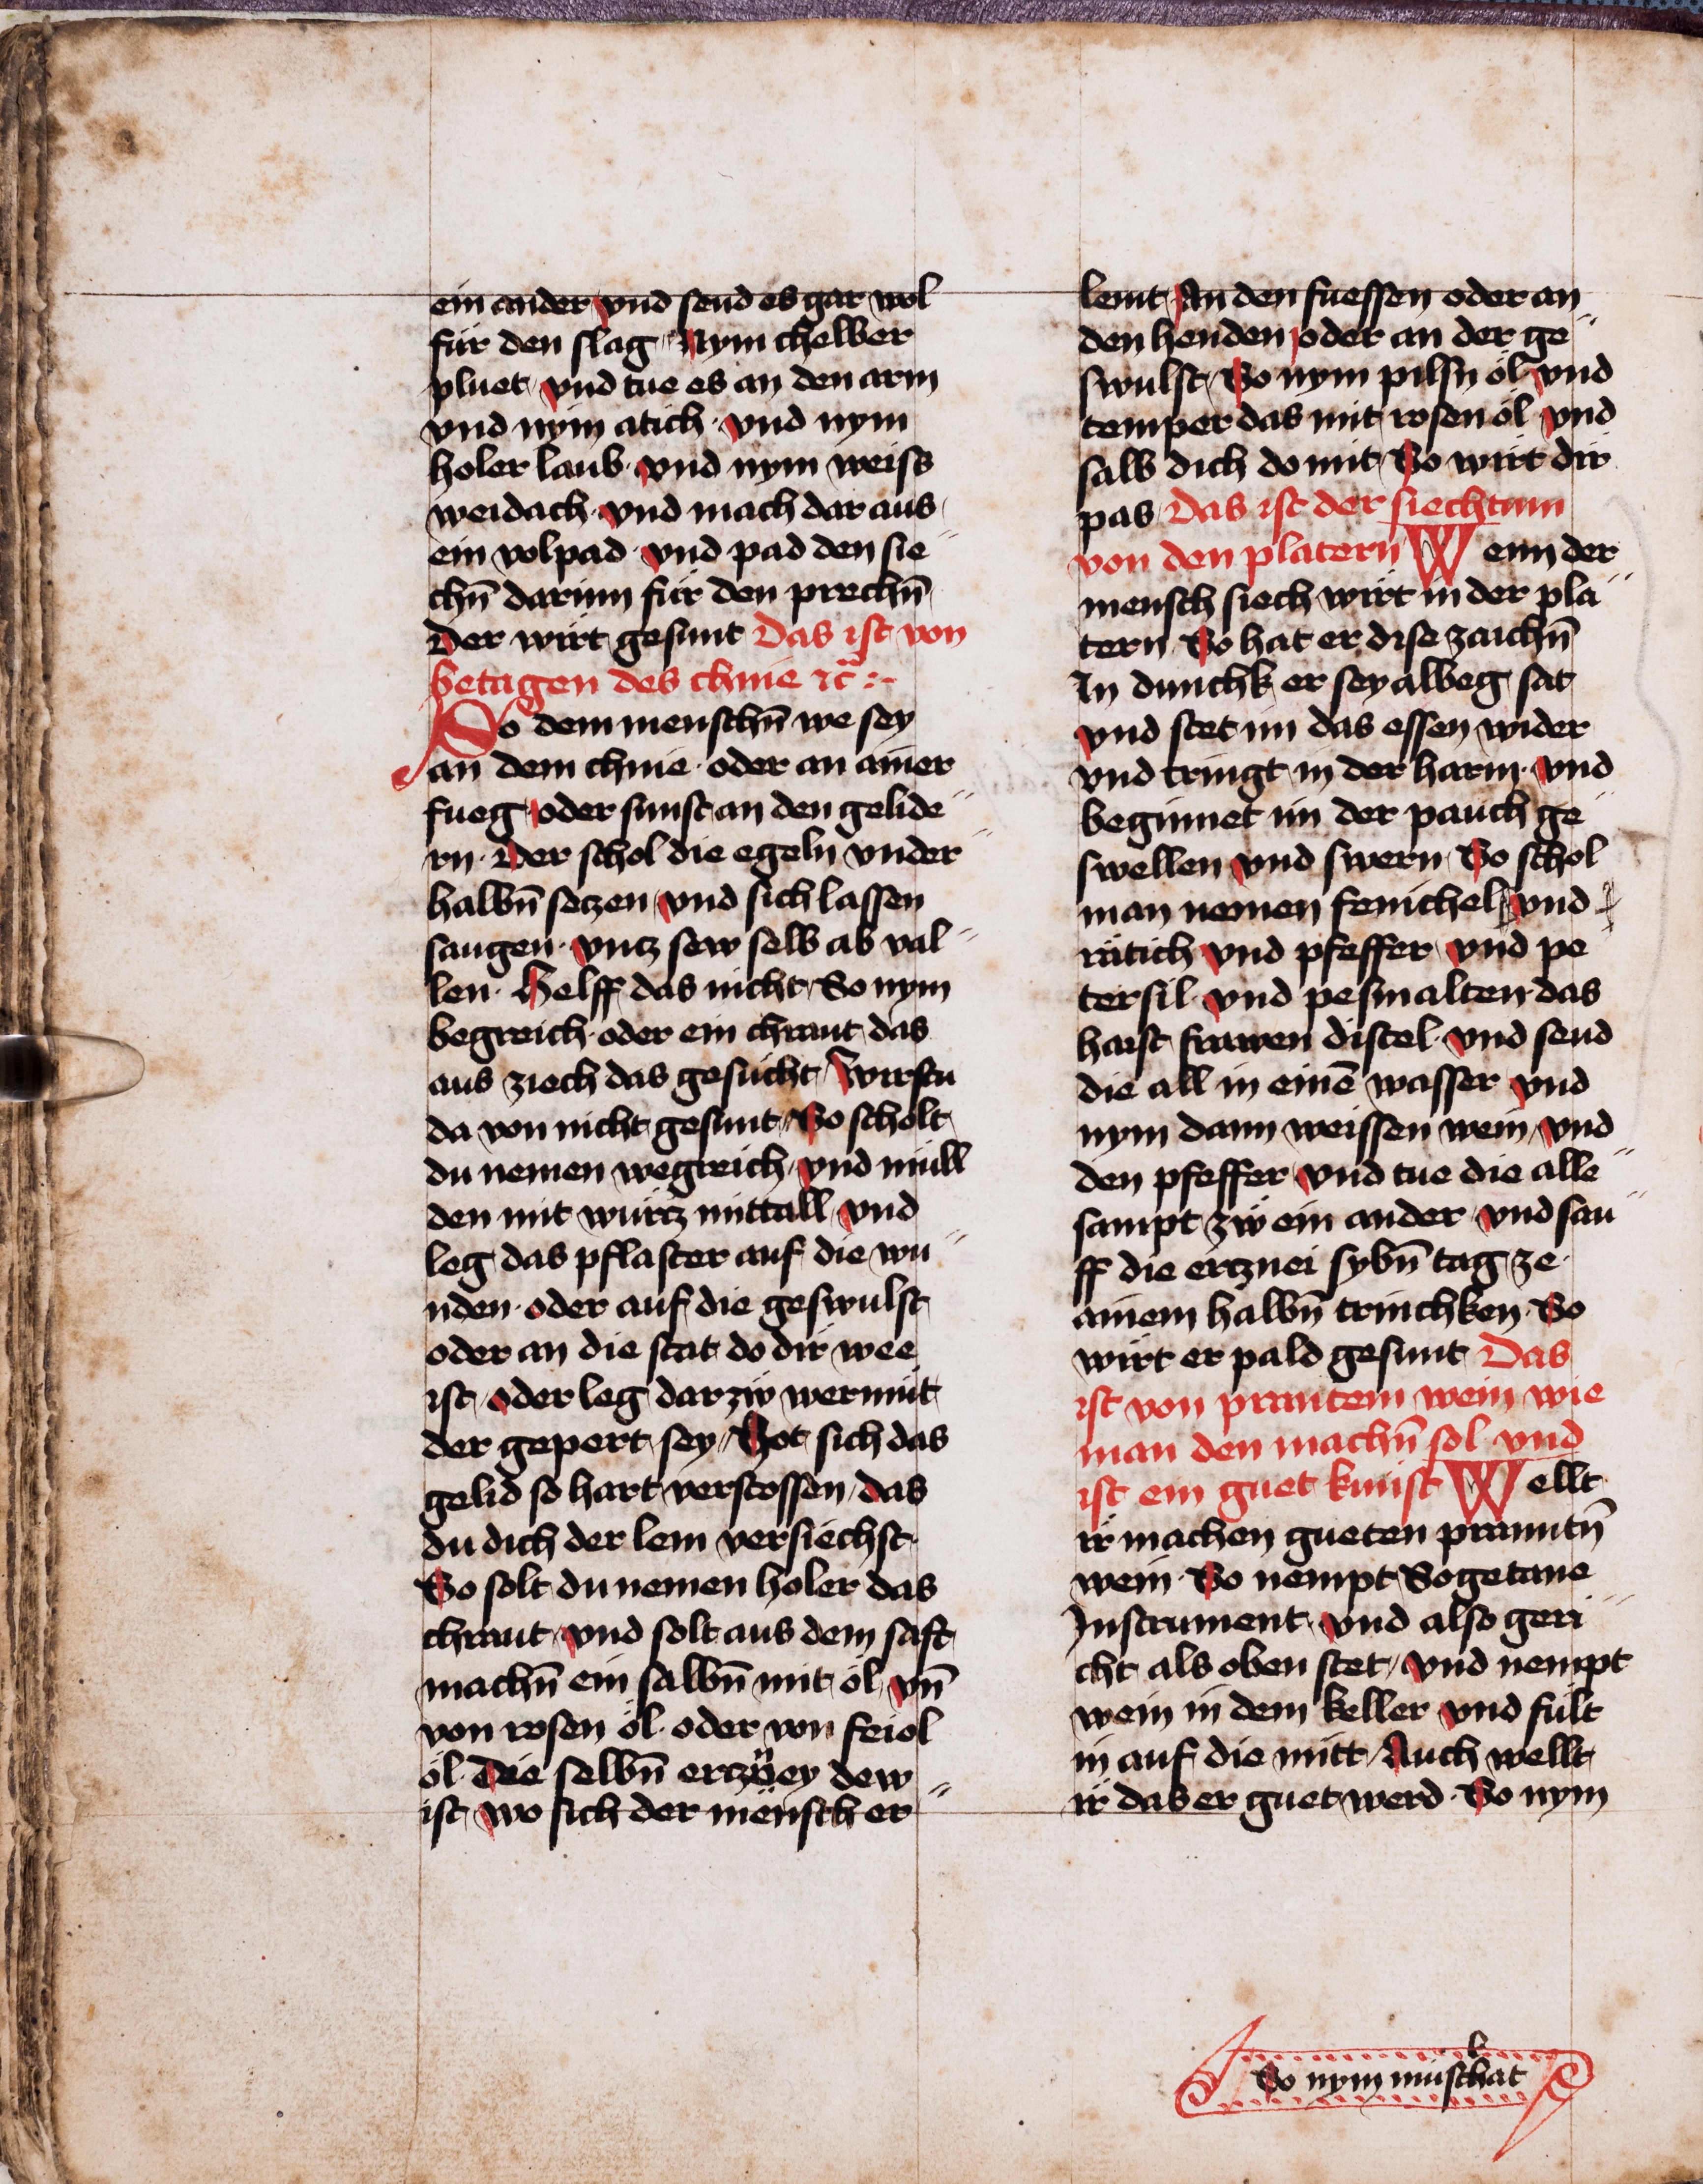 ein ander vnd send es gar wol
für den slag Nym chelber
pluet vnd tue es an den arm
vnd nym atich · vnd nym
holer laub · vnd nym weiss
weidach · vnd mach dar aus
ein volpad · vnd pad den sie
chn̄ darinn für den prechn̄
Der wirt gesunt Das ist von
betagen des chnie ꝛc̄ :-
So dem menschn̄ we sey
an dem chnie · oder an ainer
fueg oder sunst an den gelide
rn · Der schol die egeln vnder
halbn̄ setzen vnd sich lassen
saugen · vntz sew selb ab val
len · Helff das nicht So nym
begreich · oder ein chraut das
aus ziech das gesücht Wirstu
da von nicht gesunt So scholt
du nemen wegreich vnd müll
den mit würtz mittall vnd
leg das pflaster auf die wu
nden · oder auf die geswulst
oder an die stat do dir wee
ist oder leg dar zw wermüt
der gepert sey Hot sich das
gelid so hart verstossen das
du dich der lem versiechst ·
So solt du nemen holer das
chraut vnd solt aus dem saft
machn̄ ein salbn̄ mit öl vn̄
von rosen öl · oder von feiol
öl · Die selbn̄ ertzney dew
ist wo sich der mensch er
lemt An den fuessen oder an
den henden oder an der ge
swulst So nym pilsn öl vnd
temper das mit rosen öl vnd
salb dich do mit So wirt dir
pas Das ist der siechtum
von den platern Wenn der
mensch siech wirt in der pla
tern So hat er dise zaichn̄
In dunchk er sey albeg sat
vnd stet im das essen wider
vnd tringt in der harm · vnd
beginnet im der pauch ge
swellen vnd swern So schol
man nemen fenichel vnd
rätich vnd pfeffer vnd pe
tersil · vnd pesmalten das
haist frawen distel · vnd send
die all in einē wasser vnd
nym dann weissen wein vnd
den pfeffer vnd tue die alle
sampt zw ein ander vnd sau
ff die ertznei sybn̄ tag ze
ainem halbn̄ trinchken · So
wirt er pald gesunt Das
ist von prantem wein wie
man den machn̄ sol vnd
ist ein guet kunst Wellt
ir machen gueten pranntn̄
wein · So nempt Sogetane
Instrument · vnd also geri
cht als oben stet vnd nempt
wein in dem keller vnd fült
in auf die mitt Auch wellt
ir das er guet werd · So nym
So nym muschat